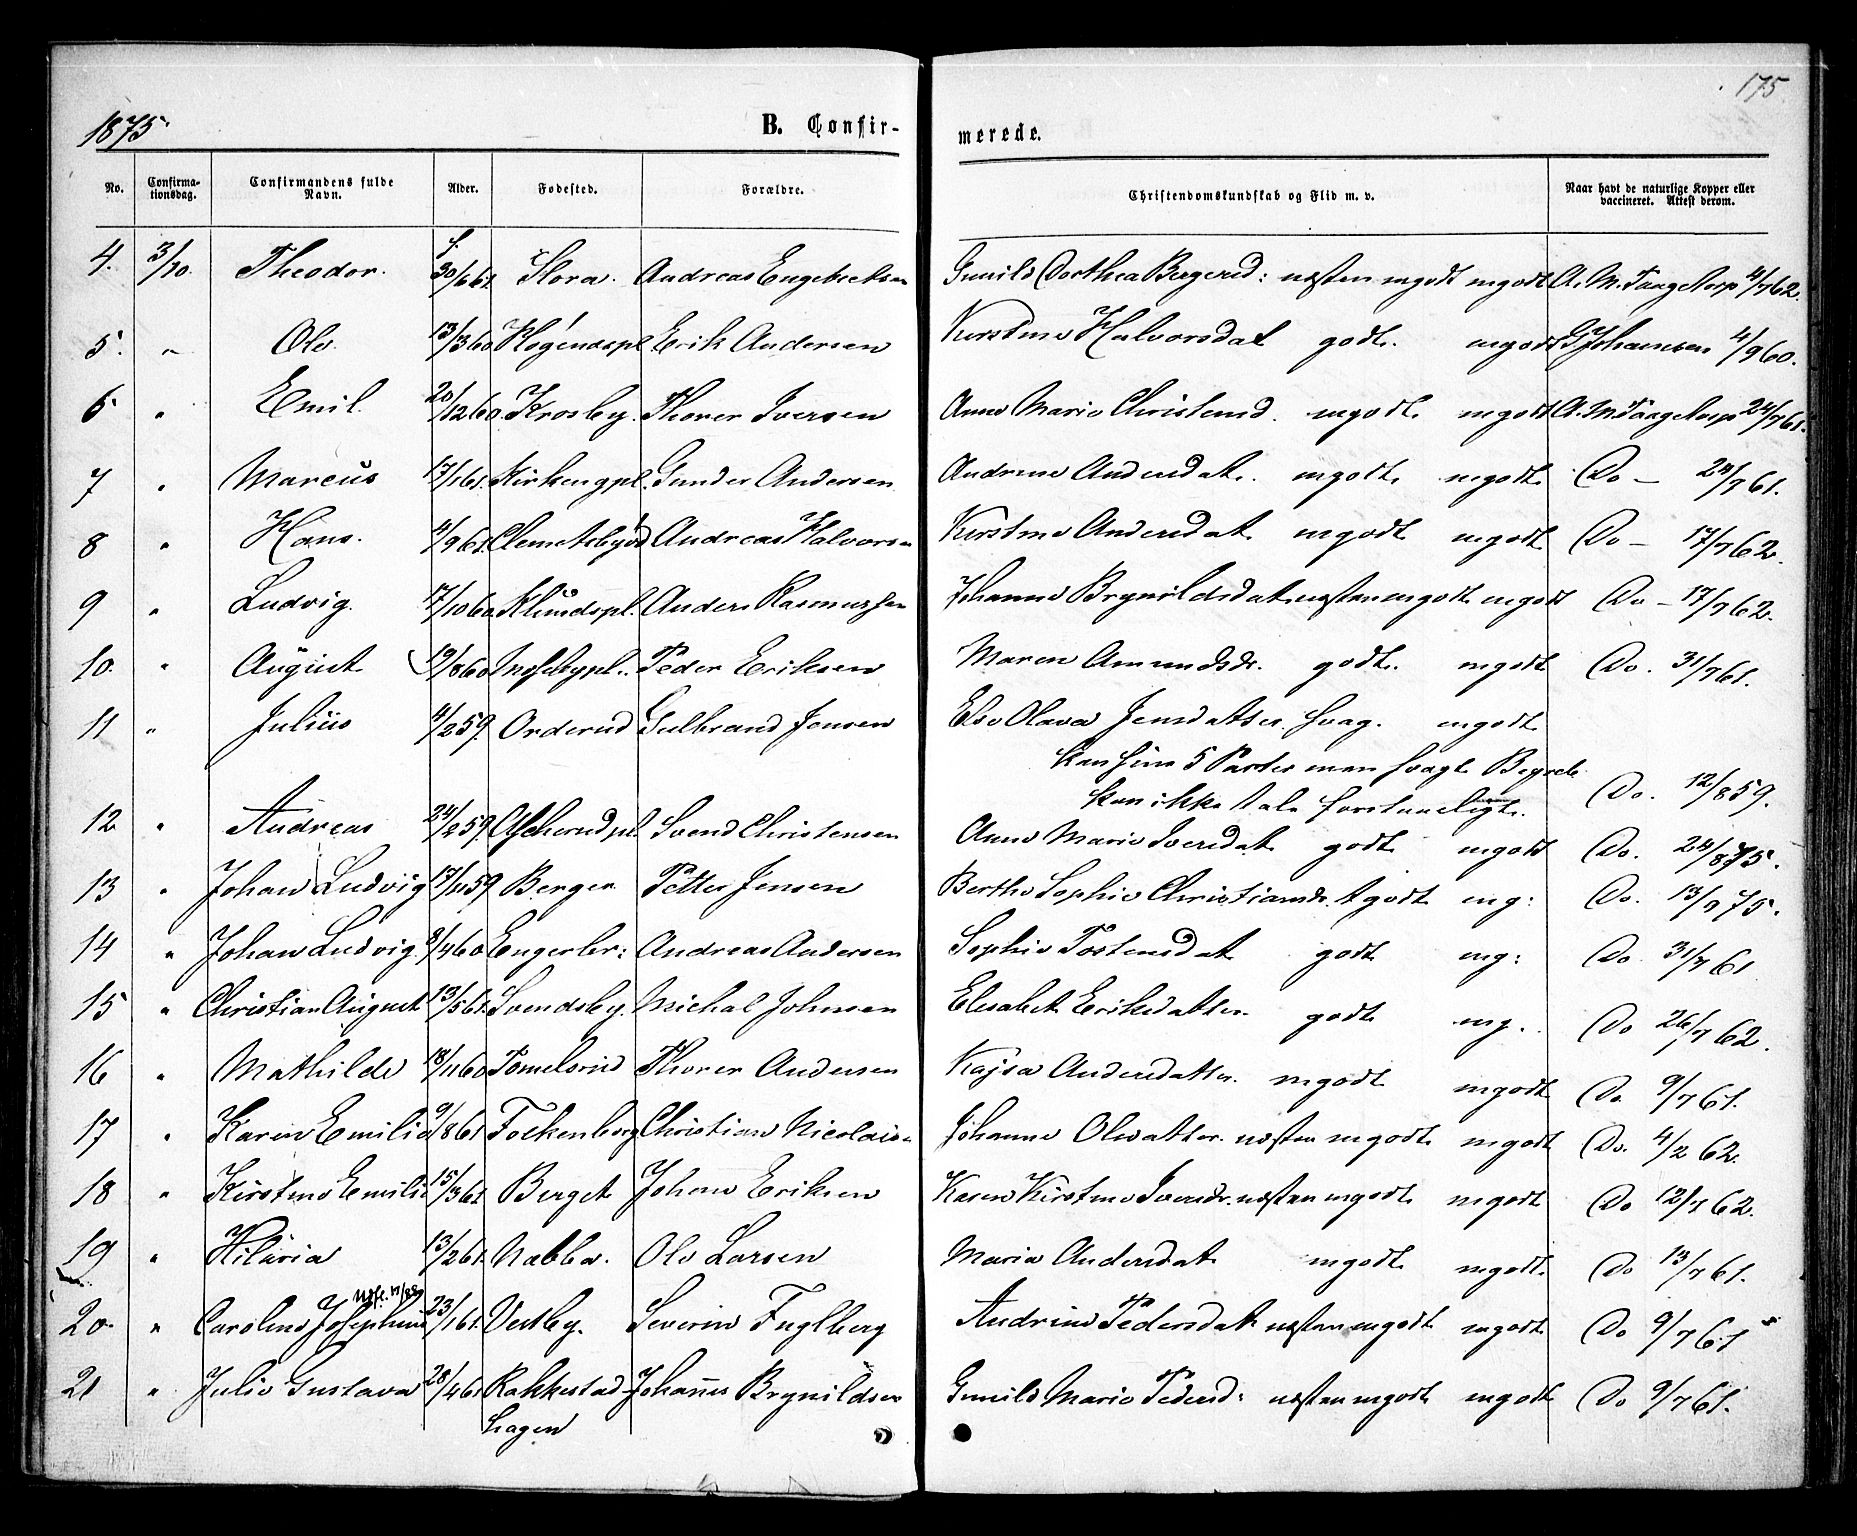 175
1875
B. Confir-
merede.
No. Confirma-tionsdag. Confirmandens fulde Navn. Alder. Fødested. Forældre. Christendomskundskab og Flid m. v. Naar havt de naturlige Kopper eller vaccineret. Attest derom.
4. 3/10. Theodor. f. 30/6 61. Flora. Andreas Engebretsen Gunild Dorthea Bergerud: næsten mgodt mgodt A. M. 4/7 62.
5. " Ole 13/3 60 Høgendspl Erik Andersen Kirstine Halvorsdat godt. mgodt G Johansen 4/9 60.
6 " Emil. 20/12 60 Krosby. Thorer Iversen Anne Marie Christensd. mgodt mgodt A. M. 24/7 61.
7 " Marcus 17/1 61. Kirkengpl. Gunder Andersen Andrine Andersdat. mgodt mgodt Do – 24/7 61.
8 " Hans. 4/9 61. Andreas Halvorsen Kirstine Andersdat mgodt mgodt Do – 17/7 62.
9 " Ludvig. 17/10 60 Klundspl. Anders Rasmussen Johanne Brynildsdat næsten mgodt mgodt Do – 17/7 62.
10. " August 19/8 60 Peder Eriksen Maren Amundsdr. godt. mgodt Do. 31/7 61.
11 " Julius 4/2 59. Orderud Gulbrand Jonsen Else Olava Jensdatter. svag. mgodt
kan sine 5 Parter men svagt Begreb
kan ikke tale forstaaeligt. Do. 12/8 59.
12 " Andreas 24/2 59. Svend Christensen Anne Marie Iversdat godt mgodt Do. 24/8 75.
13 " Johan Ludvig 17/11 59 Berger Petter Jensen Berthe Sophie Christiansdr. tgodt mg: Do. 13/9 75.
14 " Johan Ludvig 9/4 60 Engerbr: Andreas Andersen Sophie Tostensdat godt mg: Do. 31/7 61
15 " Christian August 13/5 61. Svendsby. Michal Johnsen Elisabet Eriksdatter godt mg. Do 26/7 62.
16 " Mathilde 18/11 60 Tomelsrud Thorer Andersen Kajsa Andersdatter. mgodt mgodt Do 9/7 61.
17 " Karen Emilie 9/8 61 Fockenborg Christian Nicolaisen Johanne Olsdatter. næsten mgodt mgodt Do. 4/2 62.
18 " Kirstine Emilie 15/3 61. Berget Johans Eriksen Karen Kirstine Iversdr. næsten mgodt mgodt Do 12/7 62.
19 " Hilaria 13/2 61. Nabba. Ole Larsen Maria Andersdat mgodt mgodt. Do 13/7 61.
20. " Caroline Josephine 23/1 61. Vestby. Severin Fuglberg Andrine Pedersdat næsten mgodt mgodt Do 9/7 61
21 " Julie Gustava 28/4 61 Rakkestad- Johannes Brynildsen Gunild Marie Pedersd: næsten mgodt mgodt Do 9/7 61.
hagen